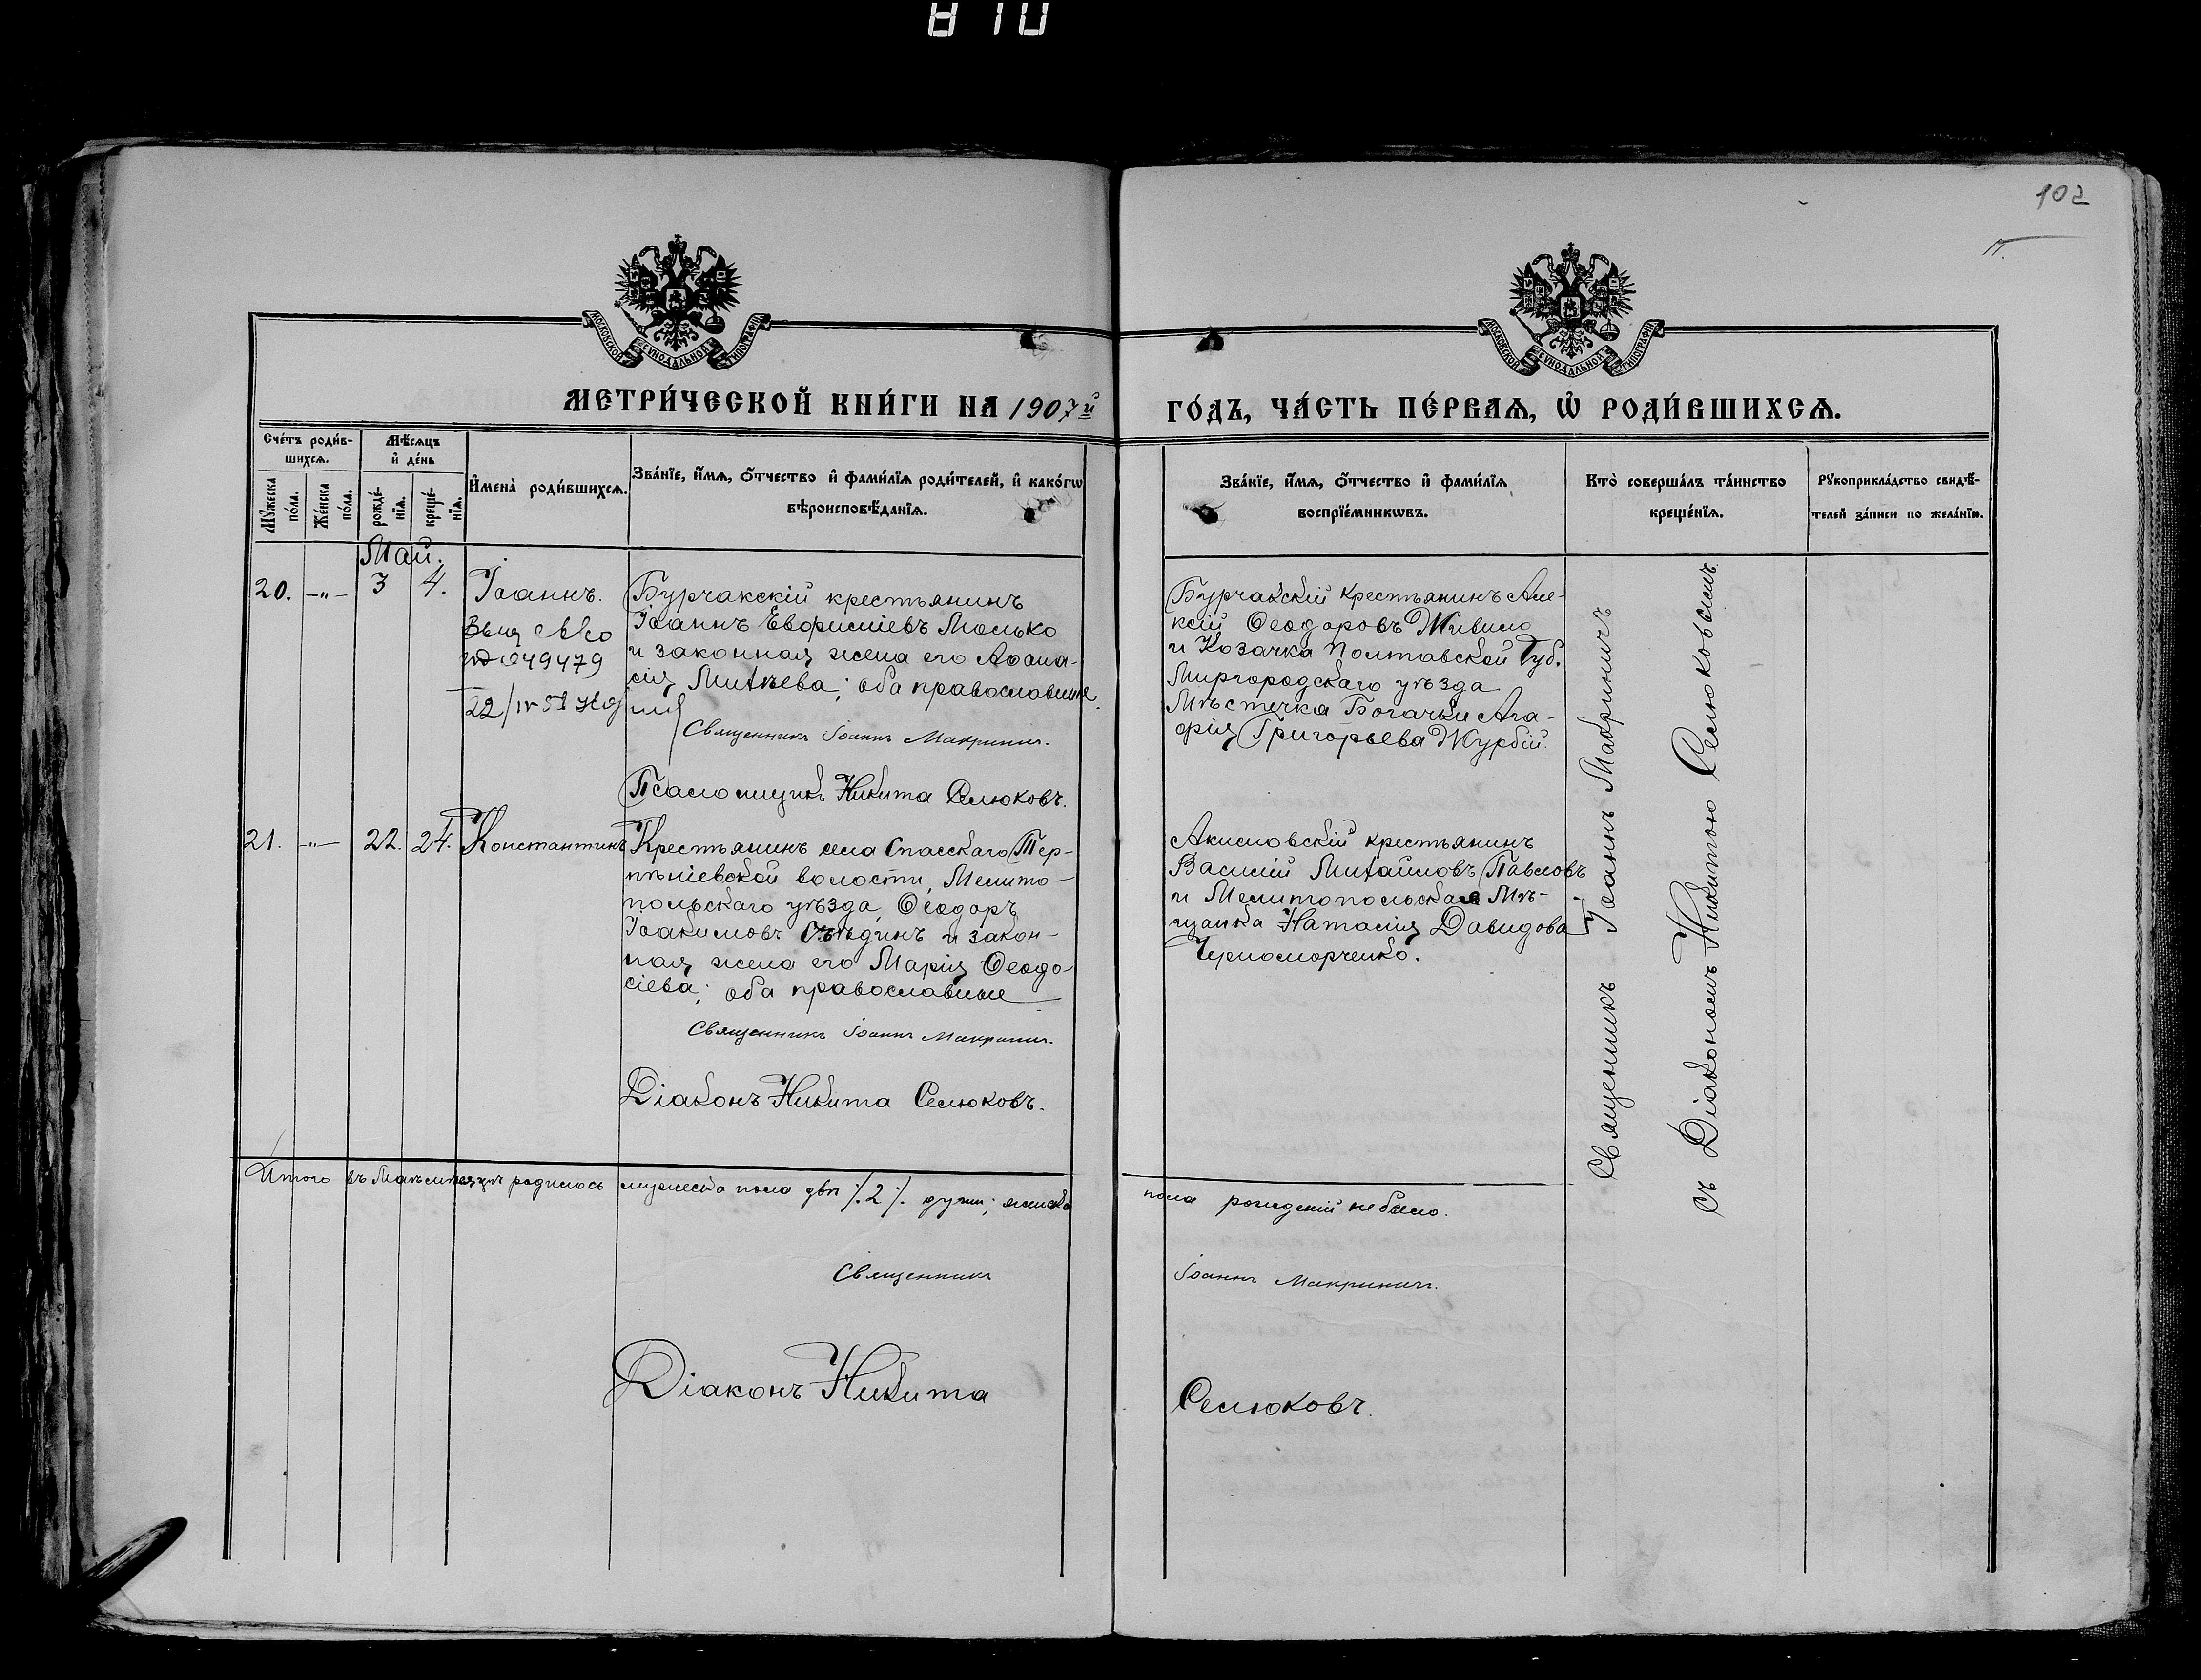 810
102
МОСКОВСКОЙ СУНОДАЛЬНОЙ ТИПОГРАФІИ
МОСКОВСКОЙ СУНОДАЛЬНОЙ ТИПОГРАФІИ
МЕТРИ́ЧЕСКОЙ КНИ́ГИ НА 1907й
ГО́ДЪ, ЧА́СТЬ ПЕ́РВАЯ, Ѡ҆ РОДИ́ВШИХСЯ.
Сче́тъ роди́в-
шихся.
Мѣ́сяцъ
и҆ де́нь
Мꙋ́жеска
по́ла.
Же́нска
по́ла.
рожде́-
нїя.
креще́-
нїя.
И҆мена̀ роди́вшихся.
Зва́нїе, и҆́мя, о҆́тчество и҆ фами́лїя роди́телей, и҆ како́гѡ
вѣроисповѣ́данїя.
Зва́нїе, и҆́мя, о҆́тчество и҆ фами́лїя
воспрїе́мникѡвъ.
Кто̀ соверша́лъ та́инство
креще́нїя.
Рꙋкоприкла́дство свидѣ́-
телей за́писи по жела́нїю.
Май.
20. -"- 3 4. Іоаннъ.
049479
22/IV
Бурчакскій крестьянинъ
Іоаннъ Евфиміевъ Моцько
и законная жена его Афана-
сія Михѣева; оба православные
Священникъ Іоаннъ Макринич.
Псаломщикъ Никита Селюковъ.
Бурчакскій крестьянинъ Але-
ксій Ѳеодоровъ Живило
и Козачка Полтавской Губ.
Миргородскаго уѣзда
Мѣстечка Богачки Ага-
фія Григорьева Журбій.
21. -"- 22. 24. Константинъ
Крестьянинъ села Спасскаго Тер-
пѣніевской волости, Мелито-
польскаго уѣзда, Ѳеодоръ
Іоакимовъ Съѣдинъ и закон-
ная жена его Марія Ѳеодо-
сіева; оба православные
Священникъ Іоаннъ Макринич.
Діаконъ Никита Селюковъ.
Акимовскій крестьянинъ
Василій Михайловъ Павловъ
и Мелитопольская Мѣ-
щанка Наталія Давидова
Черноморченко.
Священникъ Іоаннъ Макриничъ
съ Діакономъ Никитою Селюковымъ.
Итого въ Маѣ мѣсяцѣ родилось мужеска пола двѣ /.2/. души; женска
пола рожденій не было.
Священникъ
Іоаннъ Макриничъ.
Діаконъ Никита
Селюковъ.